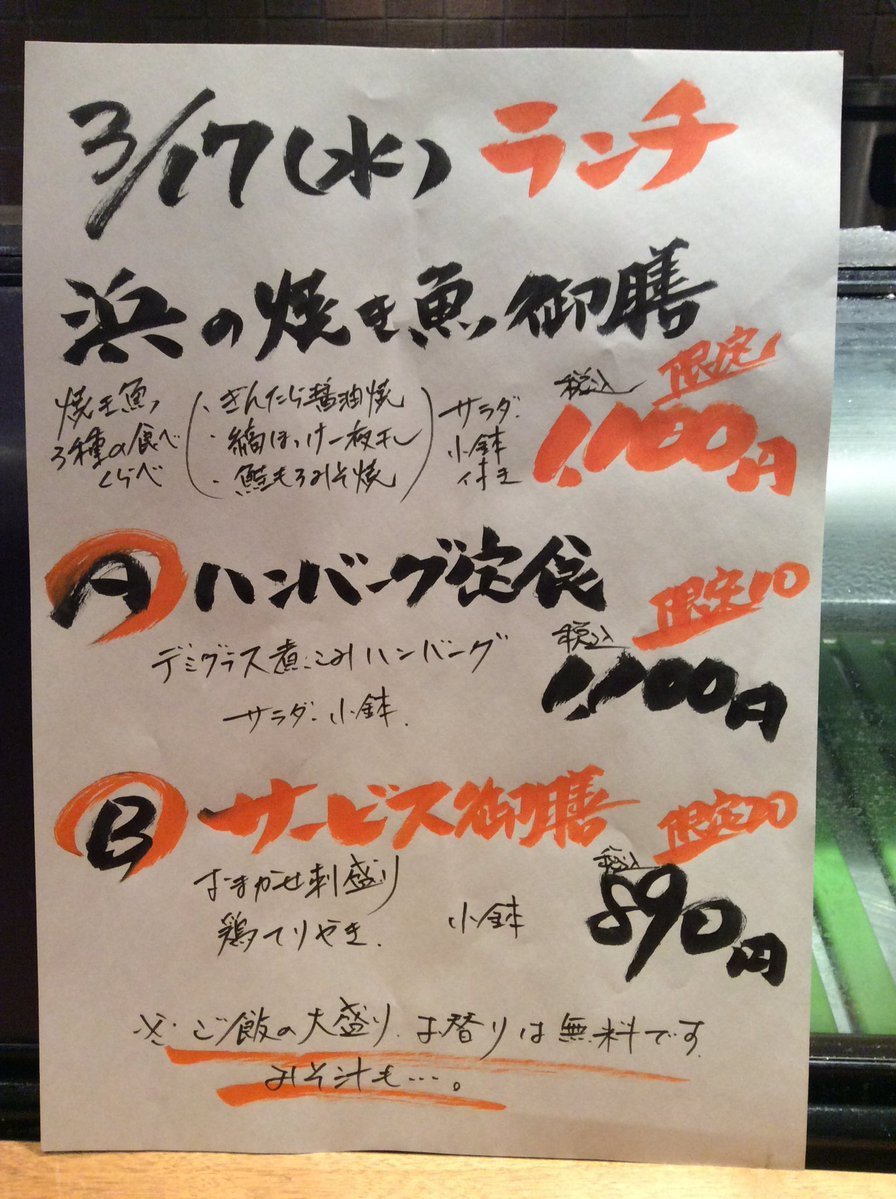 3/17(水) ランチ
浜の焼き魚御膳
限定
税込
1,100円
焼き魚
3種の食べ
くらべ
・ぎんだら醤油焼
・縞ほっけ一夜干し
・鮭もろみそ焼
サラダ、
小鉢
付き
A ハンバーグ定食
限定10
デミグラス煮こみハンバーグ
税込
1,100円
サラダ、小鉢
B サービス御膳
限定20
おまかせ刺盛り
税込
890円
鶏てりやき、 小鉢
※ご飯の大盛り、お替りは無料です
みそ汁も…。